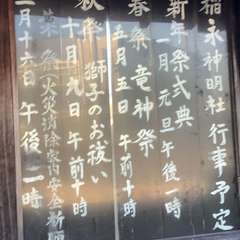 稲永神明社 行事予定
新年祭式典
一月元旦午後一時
春祭 竜神祭
五月五日 午前十時
秋祭 獅子のお祓い
十月 九日 午前十時
(火災消除家内安全祈願
月十六日 午後一時